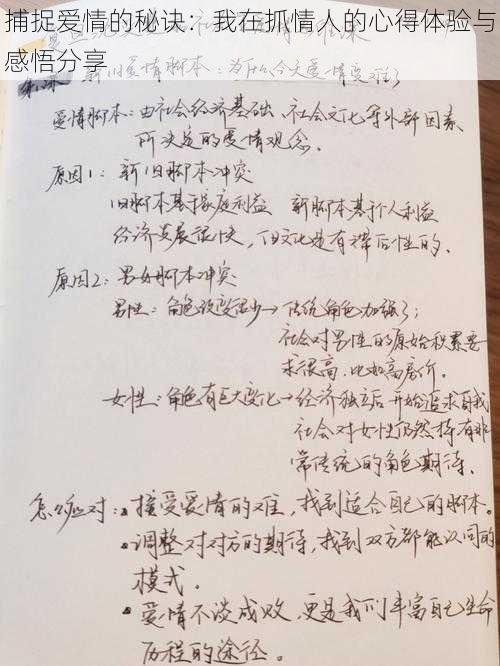 捕捉爱情的秘诀：我在抓情人的心得体验与
感悟分享
新旧爱情脚本：为什么今天爱情变难了
爱情脚本：由社会经济基础、社会文化等外部因素
所决定的爱情观念。
原因1：新旧脚本冲突
旧脚本基于家庭利益 新脚本基于个人利益
经济发展很快，但文化是有滞后性的。
原因2：男女脚本冲突
男性：角色改变很少→传统角色加强了；
社会对男性的原始积累要
求很高，比如高房价。
女性：角色有巨大变化→经济独立后开始追求自我
社会对女性仍然持有非
常传统的角色期待。
怎么应对：接受爱情的难，找到适合自己的脚本。
调整对对方的期待，找到双方都能认同的
模式。
爱情不谈成败，更是我们丰富自己生命
历程的途径。